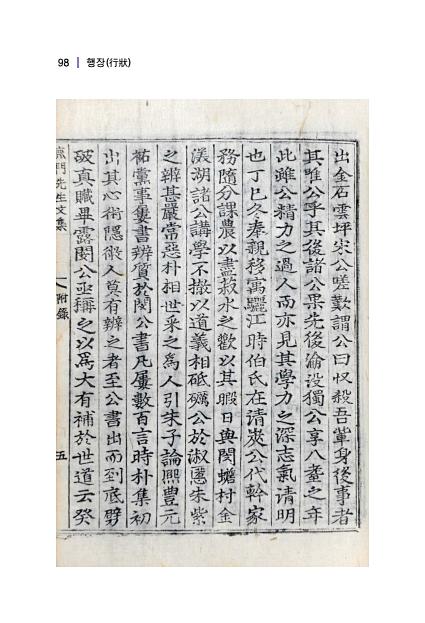 98 | 행장(行狀)
出金石雲坪宋公嗟歎謂公曰収殺吾軰身後事者
其唯公乎其後諸公果先後淪没獨公享八耋之年
此雖公精力之過人而亦見其學力之深志氣清明
也丁巳冬奉親移寓驪江時伯氏在清衙公代幹家
務隨分課農以盡菽水之歡以其暇日與閔蟾村金
渼湖諸公講學不撤以道義相砥礪公於淑慝朱紫
之辨甚嚴常惡朴相世采之爲人引朱子論熙豊元
祐黨事屢書辨質於閔公書凡屢數百言時朴集初
出其心術隱微人莫有辨之者至公書出而到底劈
破真贓畢露閔公亟稱之以爲大有補於世道云癸
門先生文集 附錄 五